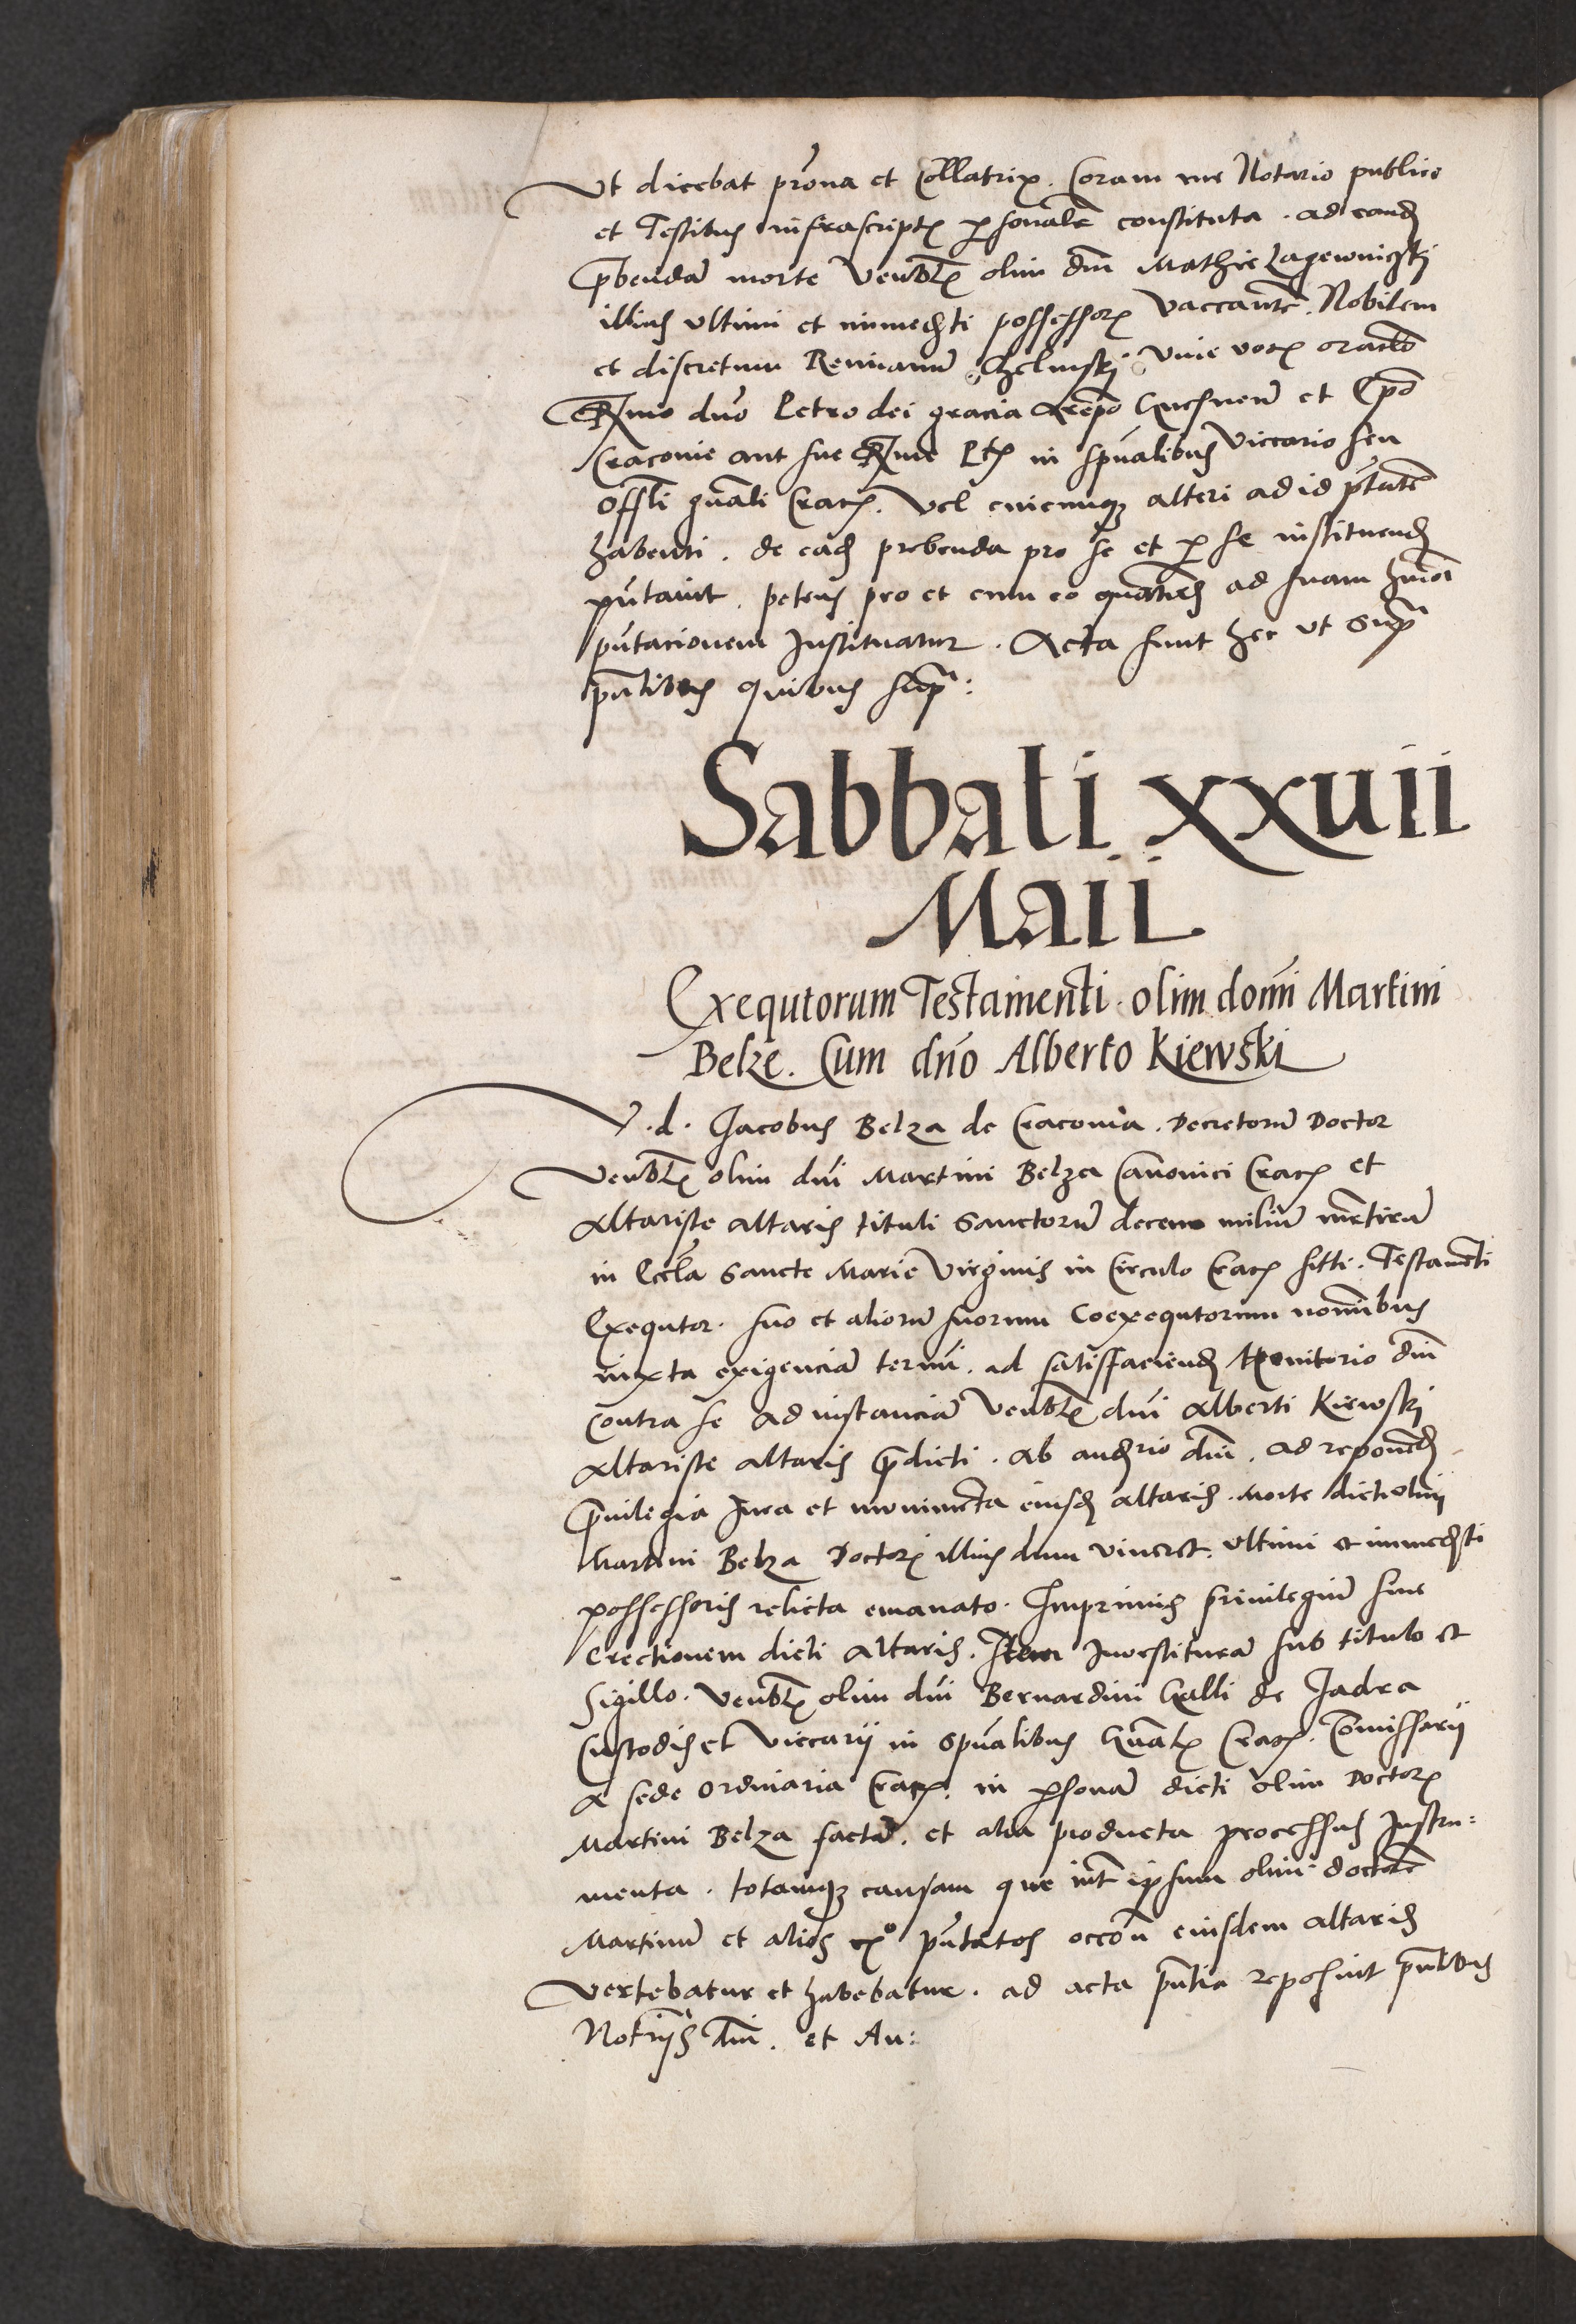 Vt dicebat pro͞na et Collatrix. Coram me Notario publico
et Testibus infrascript͞ personalr͞ constituta. ad eand͞
p͞bendam͞ morte Venbl͞ olim dn͞i Mathie Lagewniczki
illius vltimi et immed͞ti possessor͞ vaccante͞. Nobilem
et discretum Remianum͞ Chelmski viue voc͞ oraclo͞
R͞mo dn͞o Petro dei gracia Ar͞epo͞ Gnesnen͞ et Ep͞o
Cracouie aut sue R͞me P͞t͞ in sp͞ualibus Viccario seu
Offl͞i gn͞ali Crac͞. Vel cuicumqꝫ alteri ad id p͞tatem͞
habenti. de ead͞ prebenda pro se et p͞ se instituend͞
pn͞tauit. petens pro et cum eo quatin͞s ad suam hm͞oi
pn͞tacionem Instituatur. Acta sunt hec vt sup͞
pn͞tibus quibus sup͞:
Sabbati xxuiii
Maii
Exequtorum Testamenti olim domi͞ Martini
Belze. Cum dn͞o Alberto Kiewski
V. d. Jacobus Belza de Cracouia. Decretorum͞ Doctor
Venbl͞ olim dn͞i Martini Belza Canonici Crac͞ et
Altariste altaris tituli Sanctorum͞ decem milium͞ mr͞tirum͞
in Eccl͞a Sancte Marie Virginis in Circulo Crac͞ sitti. Testamen͞ti
Exequtor. suo et aliorum͞ suorum Coexequtorum nominibus͞
iuxta exigenciam͞ termi͞. ad satisfaciend͞ Monitorio dn͞i
contra se ad instanciam͞ Venbl͞ dn͞i Alberti Kiewski
Altariste altaris p͞dicti. Ab aud͞rio dn͞i. ad reponend͞
P͞uilegia Jura et munimen͞ta eiusd͞ altaris. Morte dicti olim
Martini Belza Doctor͞ illius dum viueret. vltimi et immed͞ti
possessoris relicta emanato. Imprimis priuilegium͞ siue
Erectionem dicti Altaris. Item Inuestituram͞ sub titulo et
Sigillo. Venbl͞ olim dn͞i Bernardini Galli de Jadra
Custodis et Viccarii in Sp͞ualibus Gn͞al͞ Crac͞. Com͞issarii
A sede Ordinaria Crac͞. in p͞sonam͞ dicti olim Doctor͞
Martini Belza factam͞. et alia producta processus Instru:
menta. totamqꝫ causam que int͞ ipsum olim doctorem͞
Martinum͞ et alios pn͞tatos occo͞n eiusdem altaris
vertebatur et habebatur. ad acta pn͞tia reposuit pn͞tibus
Notr͞iis dn͞i. et Au: